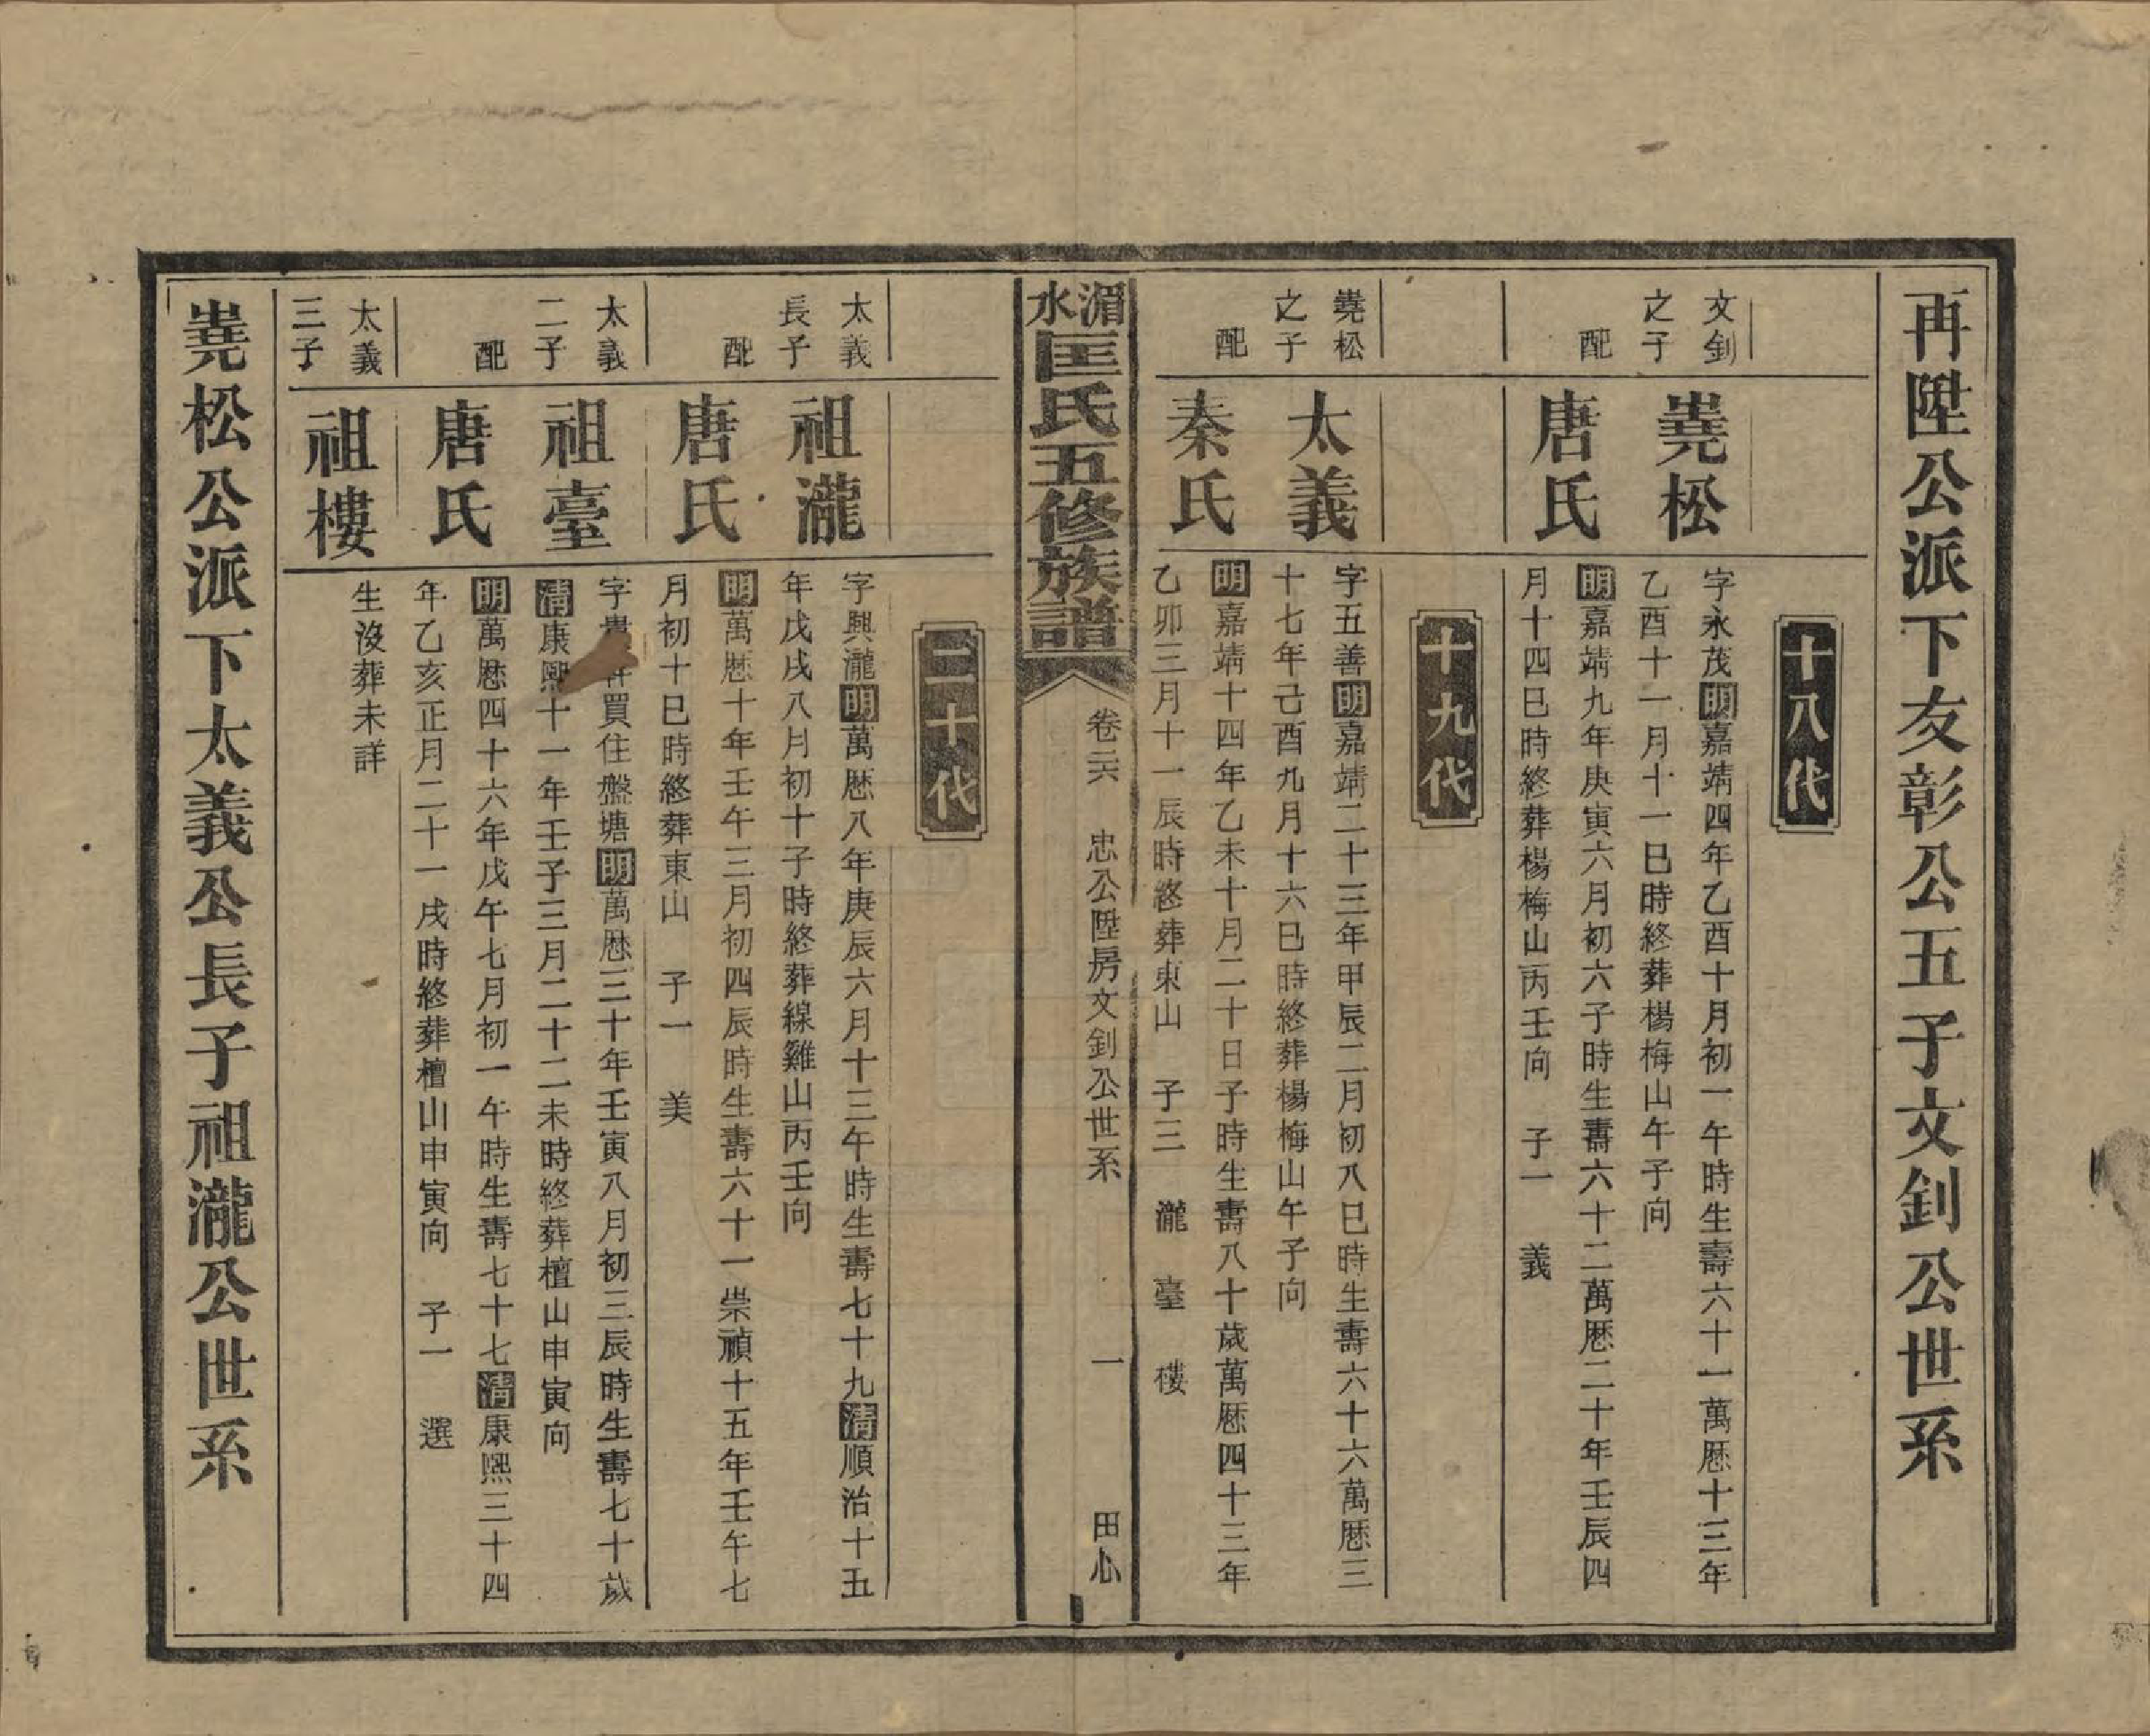 再陞公派下友彰公五子文釗公世系
十八代
文釗
之子
堯松
字永茂明嘉靖四年乙酉十月初一午時生壽六十一萬厯十三年
乙酉十一月十一巳時終葬楊梅山午子向
配
唐氏
明嘉靖九年庚寅六月初六子時生壽六十二萬厯二十年壬辰四
月十四巳時終葬楊梅山丙壬向 子一 義
十九代
堯松
之子
太義
字五善明嘉靖二十三年甲辰二月初八巳時生壽六十六萬厯三
十七年己酉九月十六巳時終葬楊梅山午子向
配
秦氏
明嘉靖十四年乙未十月二十日子時生壽八十歲萬厯四十三年
乙卯三月十一辰時終葬東山 子三 瀧 臺 樓
湄水
匡氏五修族譜
卷二六 忠公陞房文釗公世系 一 田心
二十代
太義
長子
祖瀧
字興瀧明萬厯八年庚辰六月十三午時生壽七十九清順治十五
年戊戌八月初十子時終葬線雞山丙壬向
配
唐氏
明萬厯十年壬午三月初四辰時生壽六十一崇禎十五年壬午七
月初十巳時終葬東山 子一 美
太義
二子
祖臺
字貴買住盤塘明萬厯三十年壬寅八月初三辰時生壽七十歲
清康熙十一年壬子三月二十二未時終葬檀山申寅向
配
唐氏
明萬厯四十六年戊午七月初一午時生壽七十七清康熙三十四
年乙亥正月二十一戌時終葬檀山申寅向 子一 選
太義
三子
祖樓
生沒葬未詳
堯松公派下太義公長子祖瀧公世系